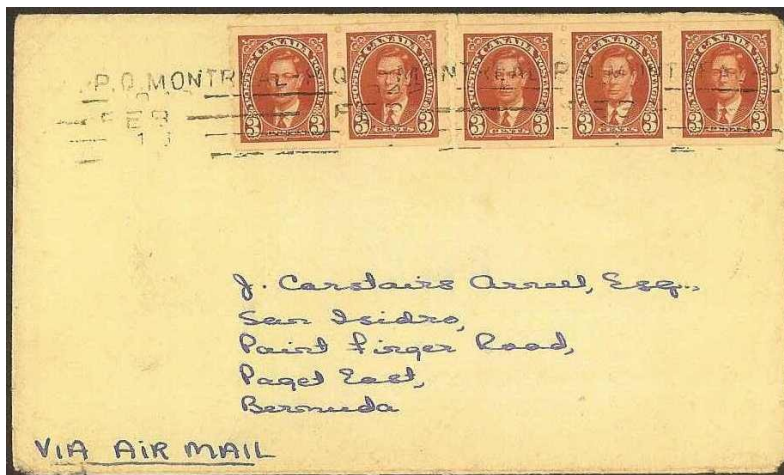 P.Q. MONTREAL P.Q. MONTREAL P.Q. MONTREAL P
FEB
POSTES CANADA POSTAGE
3 CENTS 3
POSTES CANADA POSTAGE
3 CENTS 3
POSTES CANADA POSTAGE
3 CENTS 3
POSTES CANADA POSTAGE
3 CENTS 3
POSTES CANADA POSTAGE
3 CENTS 3
J. Carstairs Arnell, Esq.,
San Isidro,
Point Finger Road,
Paget East,
Bermuda
VIA AIR MAIL